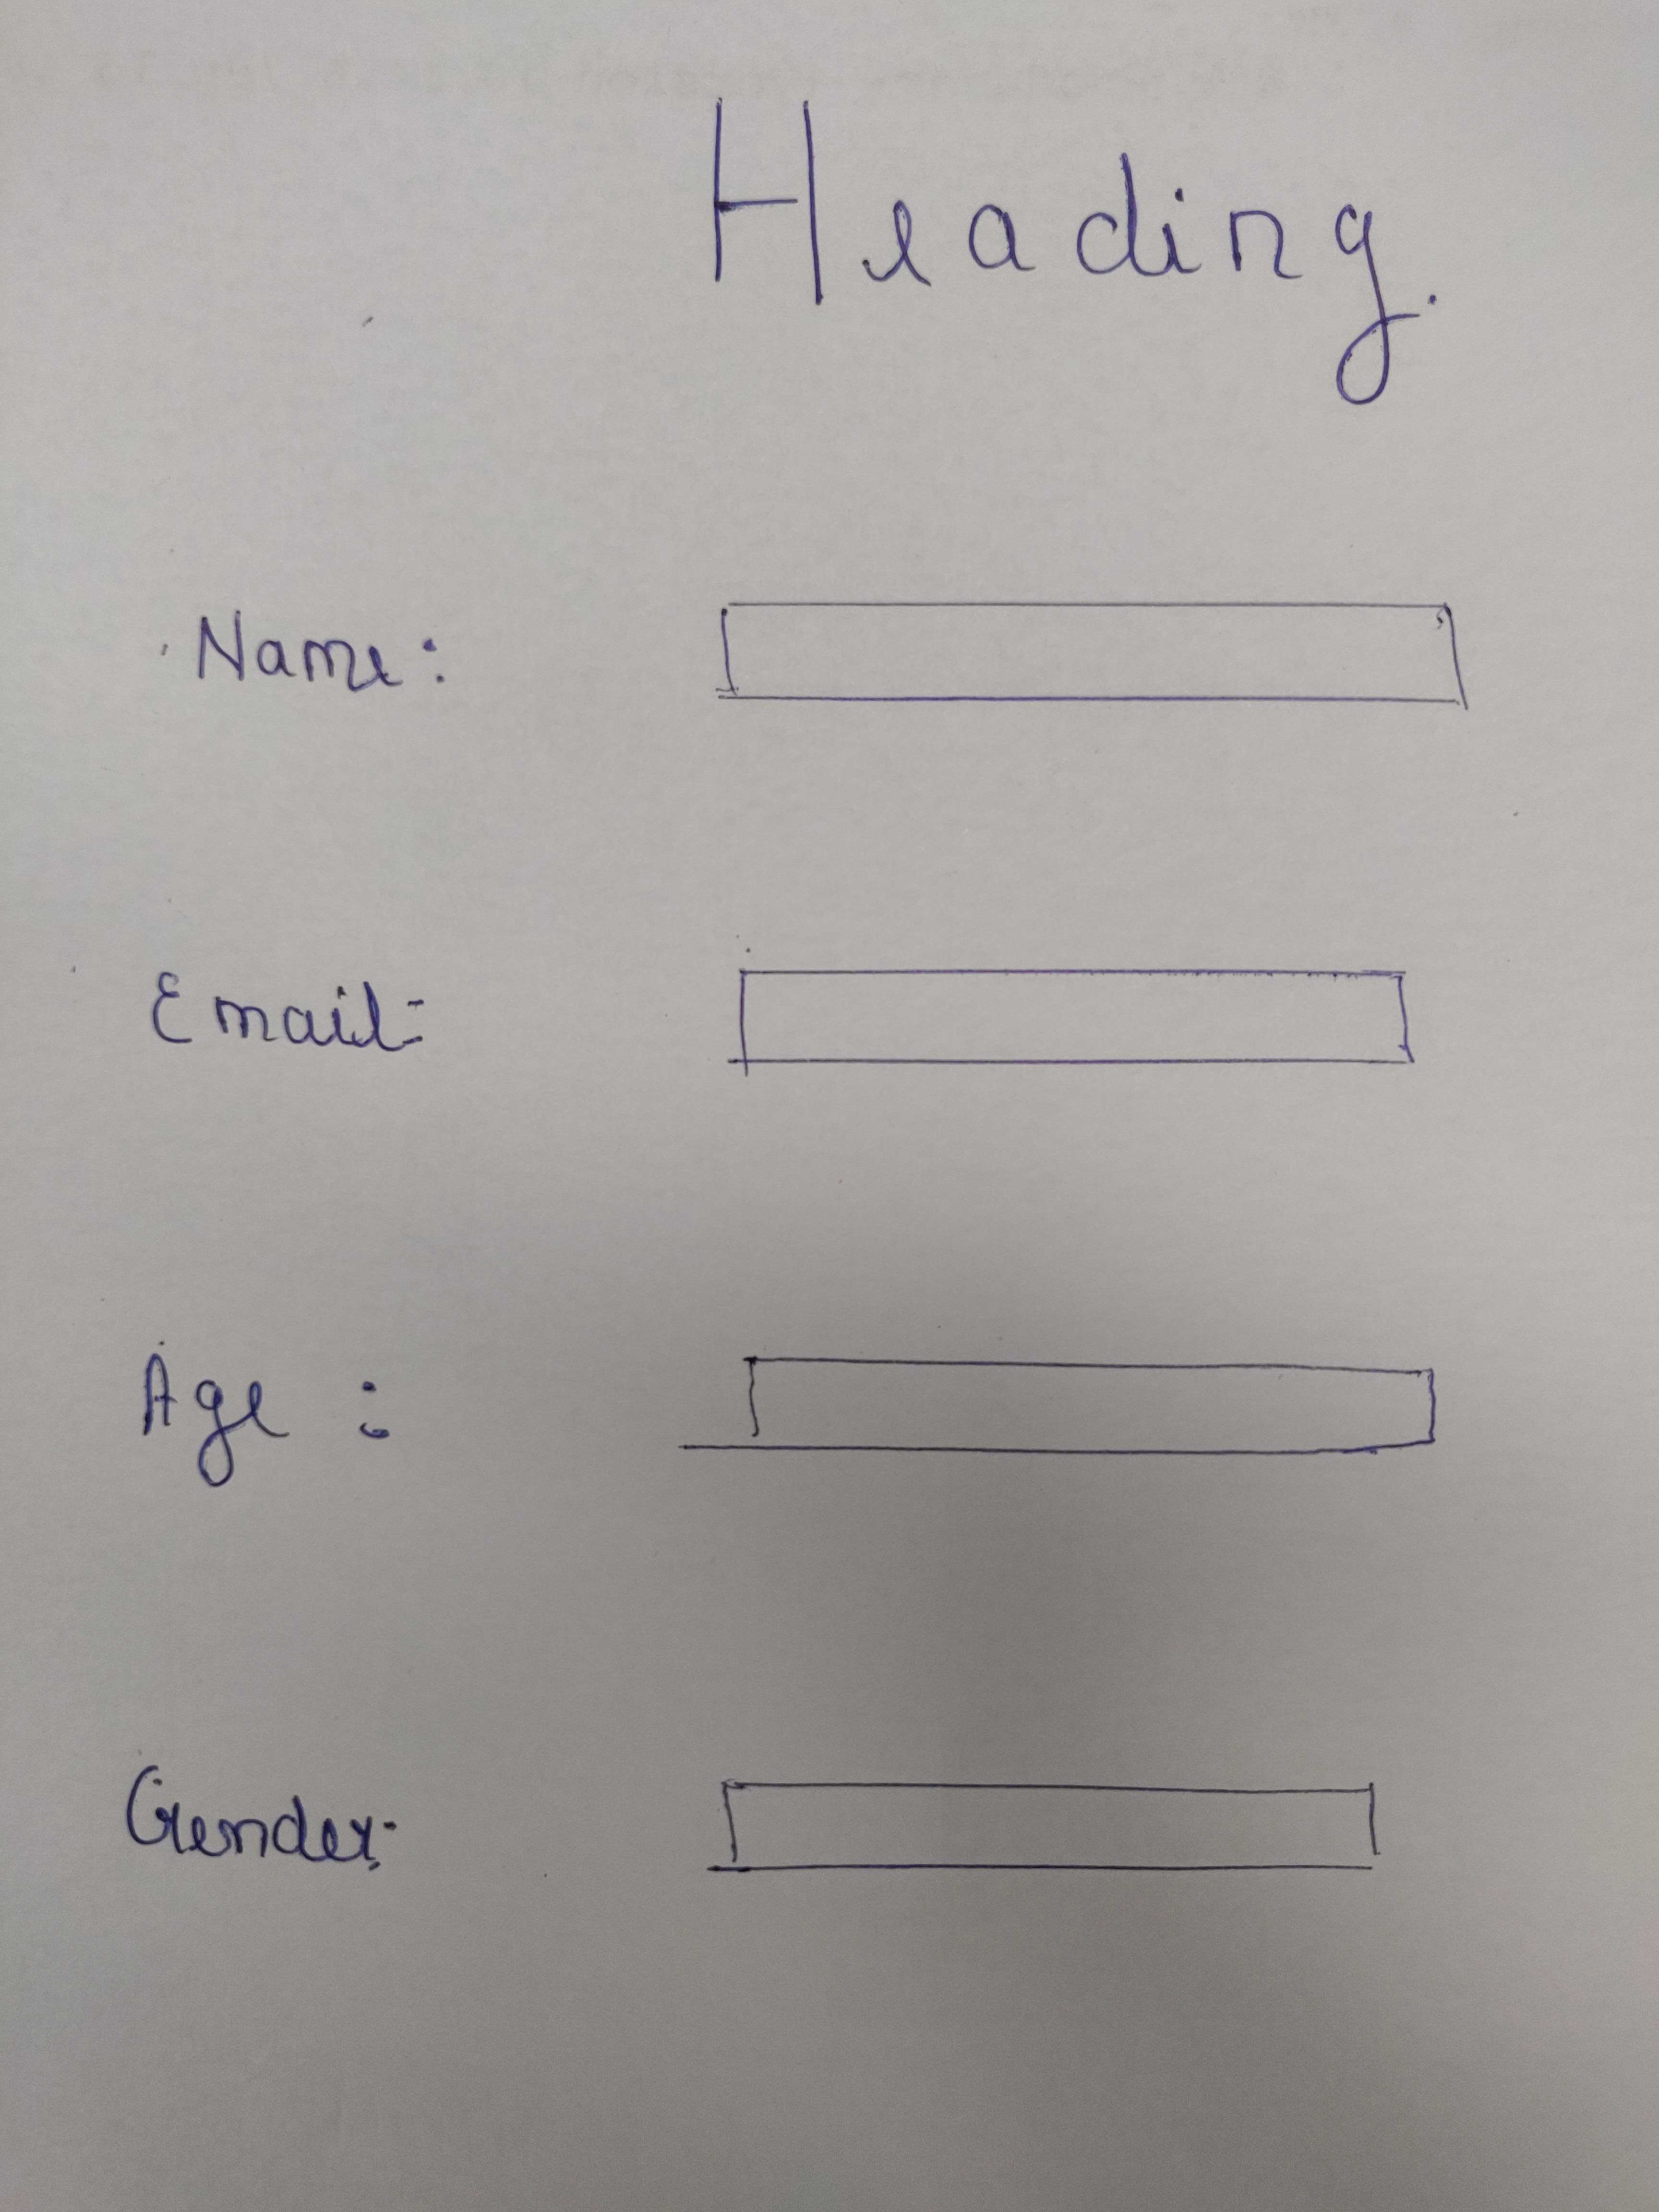 Heading.
Name:
Email:
Age :
Gender: